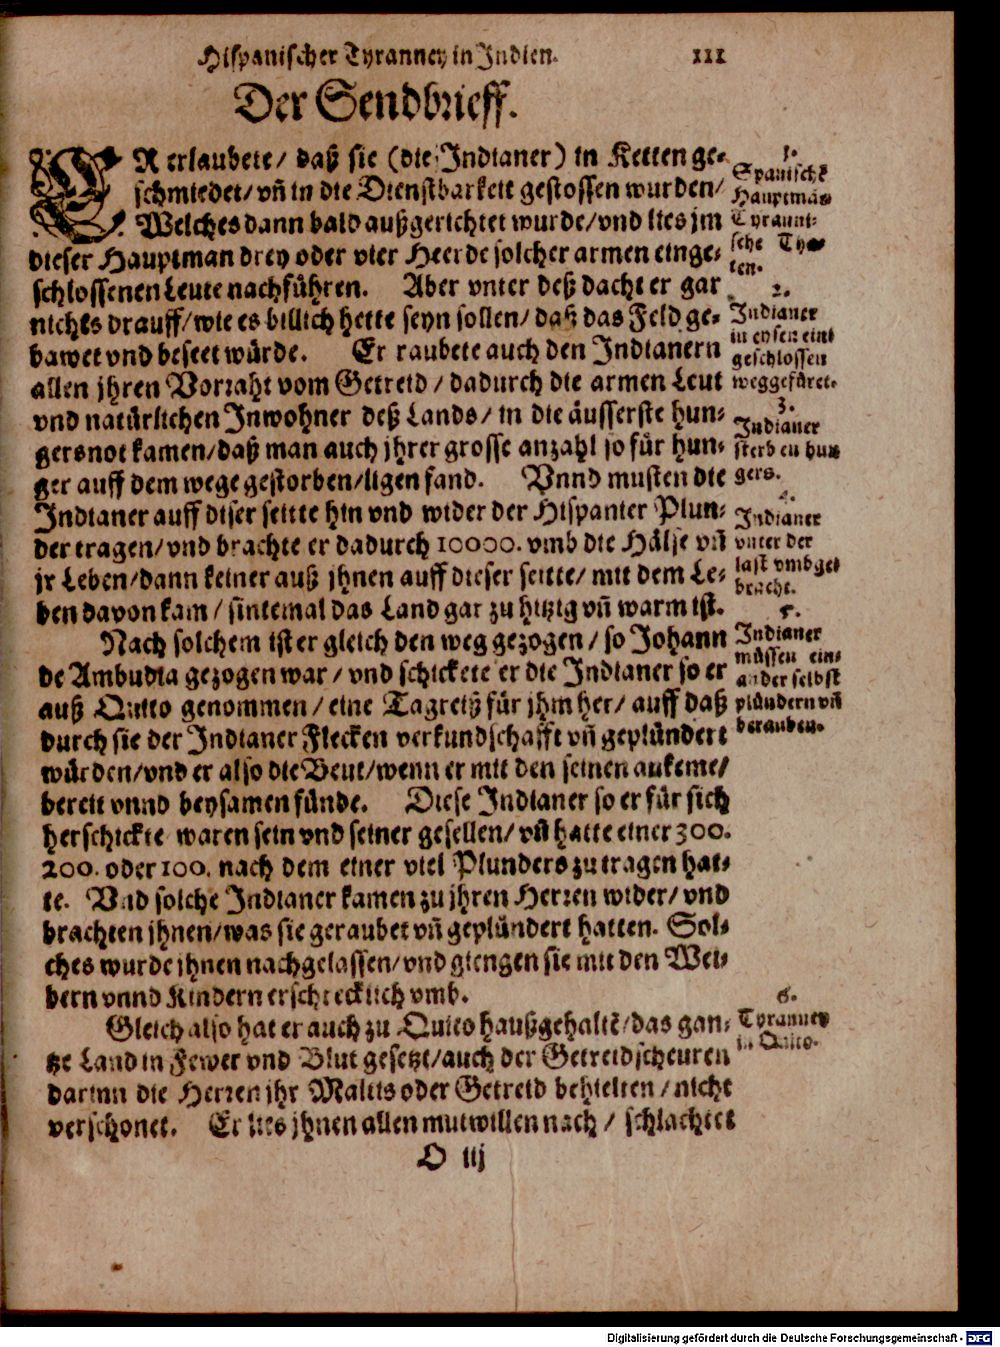 Hispanischer Tyranney in Indien. 111
Der Sendbrieff.
ER erlaubete/ daß sie (die Indianer) in Ketten ge-
schmiedet/ vñ in die Dienstbarkeit gestossen wurden/
Welches dann bald außgerichtet wurde/ vnd lies jm
dieser Hauptman drey oder vier Heerde solcher armen einge-
schlossenen Leute nachführen. Aber vnter deß dacht er gar
nichts drauff/ wie es billich hette seyn sollen/ daß das Feld ge-
bawet vnd beseet würde. Er raubete auch den Indianern
allen jhren Vorraht vom Getreid / dadurch die armen Leut
vnd natürlichen Inwohner deß Lands/ in die äusserste hun-
gersnot kamen/ daß man auch jhrer grosse anzahl so für hun-
ger auff dem wege gestorben/ ligen fand. Vnnd musten die
Indianer auff diser seitte hin vnd wider der Hispanier Plun-
der tragen/ vnd brachte er dadurch 10000. vmb die Hälse vñ
jr Leben/ dann keiner auß jhnen auff dieser seitte/ mit dem Le-
ben davon kam / sintemal das Land gar zu hitzig vñ warm ist.
Nach solchem ist er gleich den weg gezogen / so Johann
de Ambudia gezogen war / vnd schickete er die Indianer so er
auß Quito genommen / eine Tagreiß für jhm her/ auff daß
durch sie der Indianer Flecken verkundschafft vñ geplündert
würden/ vnd er also die Beut/ wenn er mit den seinen ankeme/
bereit vnnd beysamen fünde. Diese Indianer so er für sich
herschickte waren sein vnd seiner gesellen/ vñ hatte einer 300.
200. oder 100. nach dem einer viel Plunders zu tragen hat-
te. Vnd solche Indianer kamen zu jhren Herren wider/ vnd
brachten jhnen/ was sie geraubet vñ geplündert hatten. Sol-
ches wurde jhnen nachgelassen/ vnd giengen sie mit den Wei-
bern vnnd Kindern erschrecklich vmb.
Gleich also hat er auch zu Quito haußgehaltē/ das gan-
tze Land in Fewer vnd Blut gesetzt/ auch der Getreidscheuren
darinn die Herren jhr Malis oder Getreid behielten / nicht
verschonet. Er lies jhnen allen mutwillen nach / schlachtet
O iij
1.
Spanischē
Hauptmās
Tyranni-
sche
2.
Indianer
in eysen ein-
geschlossen
weggefüret.
3.
Indianer
sterben hun-
gers.
4.
Indianer
vnter der
last vmbge-
bracht.
5.
Indianer
müssen ein-
ander selbst
plündern vñ
berauben.
6.
Tyranney
in Quito.
Digitalisierung gefördert durch die Deutsche Forschungsgemeinschaft - DFG